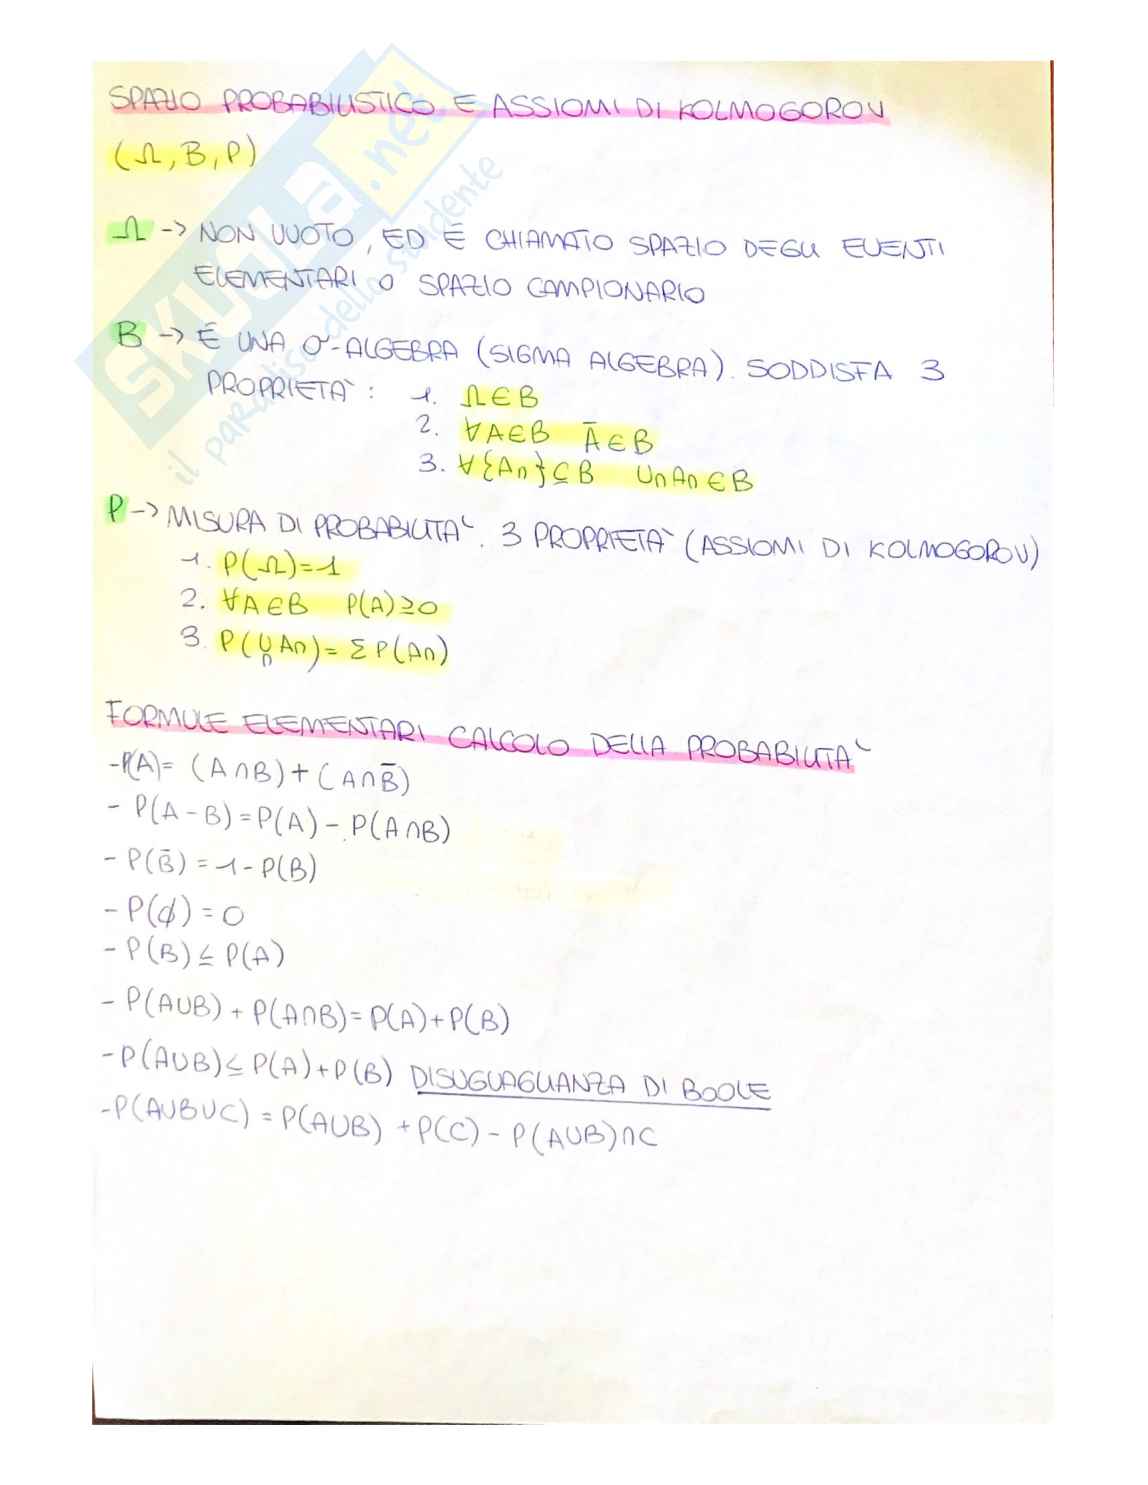 SPAZIO PROBABILISTICO E ASSIOMI DI KOLMOGOROV
(Ω, B, P)
Ω -> NON VUOTO, ED È CHIAMATO SPAZIO DEGLI EVENTI
ELEMENTARI O SPAZIO CAMPIONARIO
B -> È UNA σ-ALGEBRA (SIGMA ALGEBRA). SODDISFA 3
PROPRIETA` :
1. Ω∈B
2. ∀A∈B Ā∈B
3. ∀{An}⊆B UnAn∈B
P -> MISURA DI PROBABILITA`. 3 PROPRIETA` (ASSIOMI DI KOLMOGOROV)
1. P(Ω)=1
2. ∀A∈B P(A)≥0
3. P(∪n An)= Σ P(An)
FORMULE ELEMENTARI CALCOLO DELLA PROBABILITA`
-P(A)= (A∩B)+(A∩B̄)
- P(A-B)=P(A)- P(A∩B)
- P(B̄)=1-P(B)
- P(∅)=0
- P(B)≤P(A)
- P(A∪B)+P(A∩B)=P(A)+P(B)
-P(A∪B)≤P(A)+P(B) DISUGUAGLIANZA DI BOOLE
-P(A∪B∪C)=P(A∪B)+P(C)-P(A∪B)∩C
SKUOLA.net
il paradiso dello studente